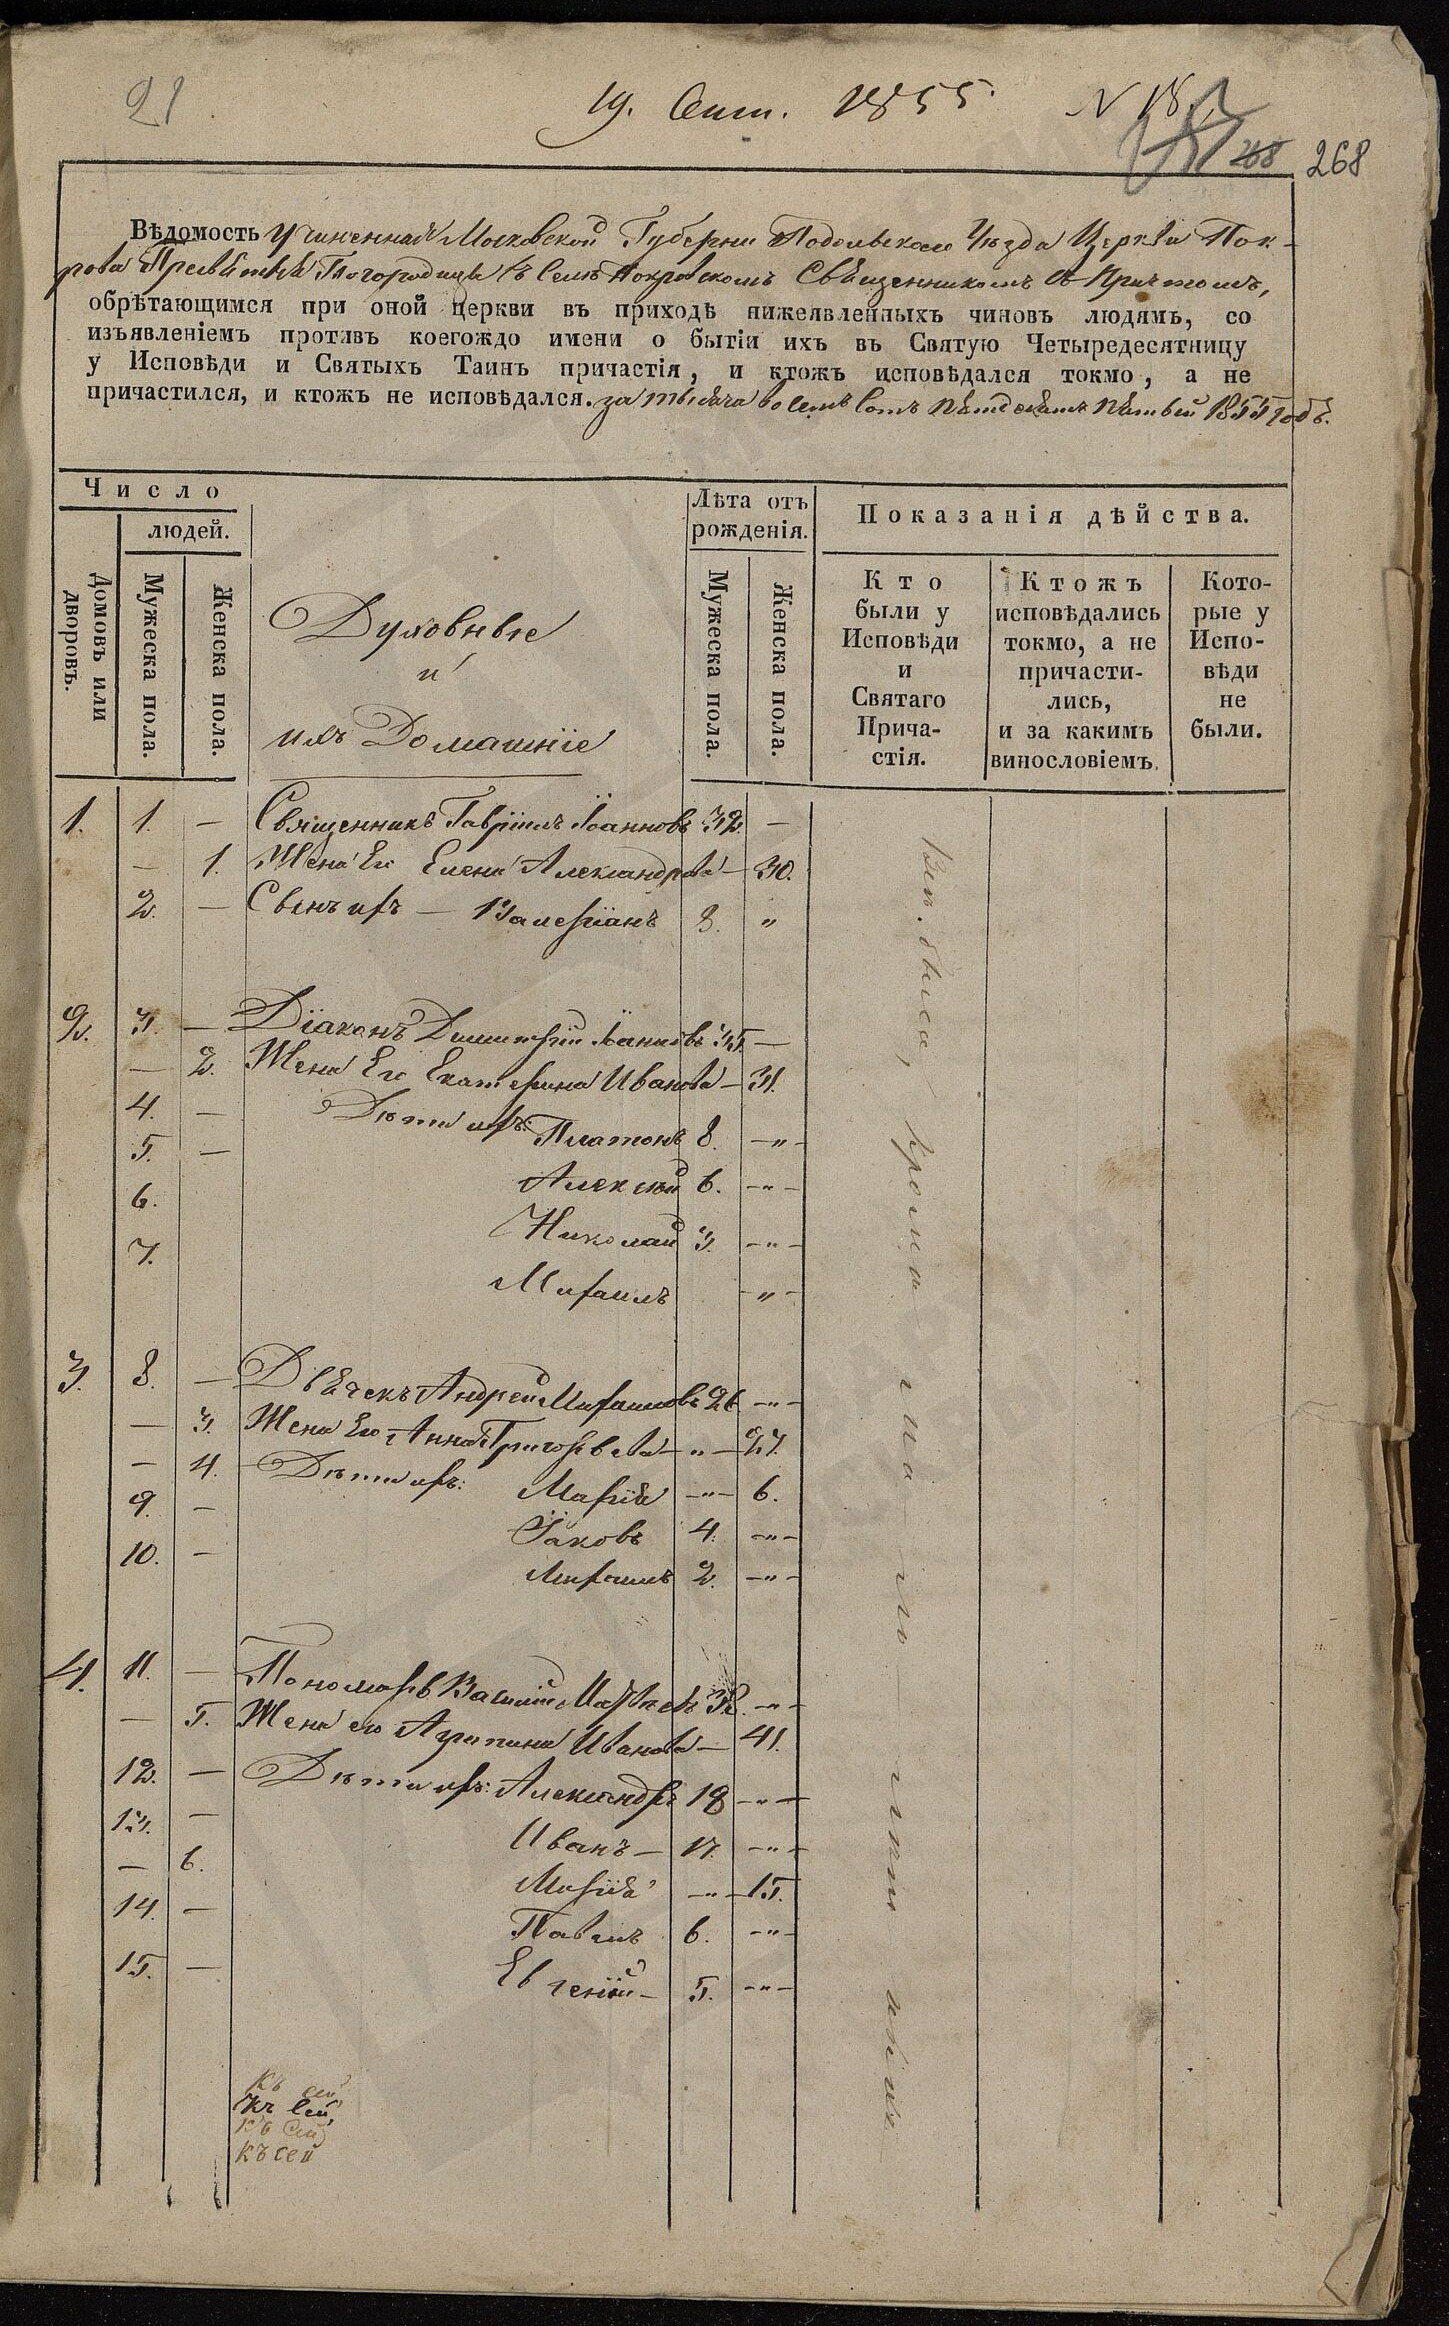 21
19. Сент. 1855. N 18
268 268
Вѣдомость Учиненная Московской Губерніи Подольскаго Уѣзда Церкви Пок-
рова Пресвятыя Богородицы въ Селѣ Покровскомъ Священникомъ съ Причтомъ,
обрѣтающимся при оной церкви въ приходѣ нижеявленныхъ чиновъ людямъ, со
изъявленіемъ противъ коегождо имени о бытіи ихъ въ Святую Четыредесятницу
у Исповѣди и Святыхъ Таинъ причастія, и ктожъ исповѣдался токмо, а не
причастился, и ктожъ не исповѣдался. за тысяча восемь сотъ пятдесятъ пятый 1855 годъ.
Число
людей.
Домовъ или дворовъ.
Мужеска пола.
Женска пола.
Духовныe
и
ихъ Домашніе
Лѣта отъ
рожденія.
Мужеска пола.
Женска пола.
Показанія дѣйства.
Кто
были у
Исповѣди
и
Святаго
Прича-
стія.
Ктожъ
исповѣдались
токмо, а не
причасти-
лись,
и за какимъ
винословіемъ.
Кото-
рые у
Испо-
вѣди
не
были.
1. 1. — Священникъ Гавріилъ Іоанновъ 32 —
— 1. Жена Его Елена Александрова — 30.
2. — Сынъ ихъ — Валеріанъ 8. "
2. 3. — Діаконъ Димитрій Іоанновъ 35. —
— 2. Жена Его Екатерина Иванова — 31.
4. — Дѣти ихъ: Платонъ 8. —"—
5. — Алексѣй 6. —"—
6. Николай 3. —"—
7. Михаилъ —"—
3. 8. — Дьячекъ Андрей Михаиловъ 26 —"—
— 3. Жена Его Анна Григорьева —"— 27.
— 4. Дѣти ихъ: Марія —"— 6.
9. — Іаковъ 4. —"—
10. — Михаилъ 2. —"—
4. 11. — Пономарь Василій 38. —"—
— 5. Жена его Агрипина Иванова — 41.
12. — Дѣти ихъ: Александръ 18 —"—
13. — Иванъ — 17. —"—
— 6. Марія —"— 15.
14. — Павелъ 6. —"—
15. — Евгеній — 5. —"—
кромѣ
къ сей
къ сей
къ сей
къ сей